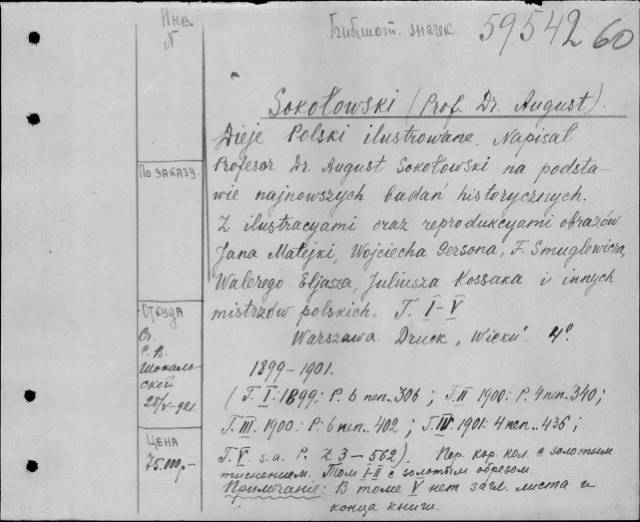 Инв.
N
Библиот. значек.
59542 60
Sokołowski (Prof. Dr. August).
Dieje Polski ilustrowane. Napisał
По заказу.
Profesor Dr. August Sokołowski na podsta-
wie najnowszych badań historycznych.
Z ilustracyami oraz reprodukcyami obrazów
Jana Matejki, Wojciecha Gersona, F. Smuglewicza,
Walerego Eljasza, Juliusza Kossaka i innych
mistrzów polskich. T. I-V
Откуда
От
Р. В.
Шокаль-
ской
28/V-921.
Warszawa. Druck „Wieku". 4°.
1899-1901.
(T. I: 1899: P. 6 неп. 306; T. II 1900: P. 4 неп. 340;
T. III. 1900: P. 6 неп. 402; T. IV. 1901: 4 неп. 436;
Цена
75.000р-
T. V s.a. P. Z 3-562). Пер. кор. кол. с золотым
тиснением. Том I-II с золотым обрезом
Примечание: В томе V нет загл. листа и
конца книги.